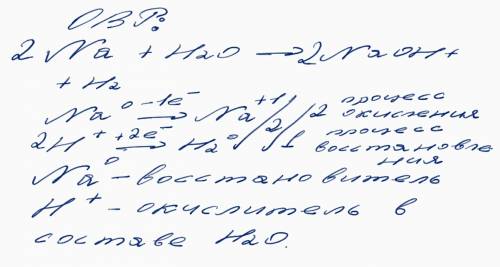 ОВР:
2Na + H2O → 2NaOH +
+ H2
Na⁰ -1e⁻ → Na⁺¹ // 2 процесс окисления
2H⁺ +2e⁻ → H2⁰ / 2 / 1 процесс восстановления
Na⁰ - восстановитель
H⁺ - окислитель в
составе H2O.